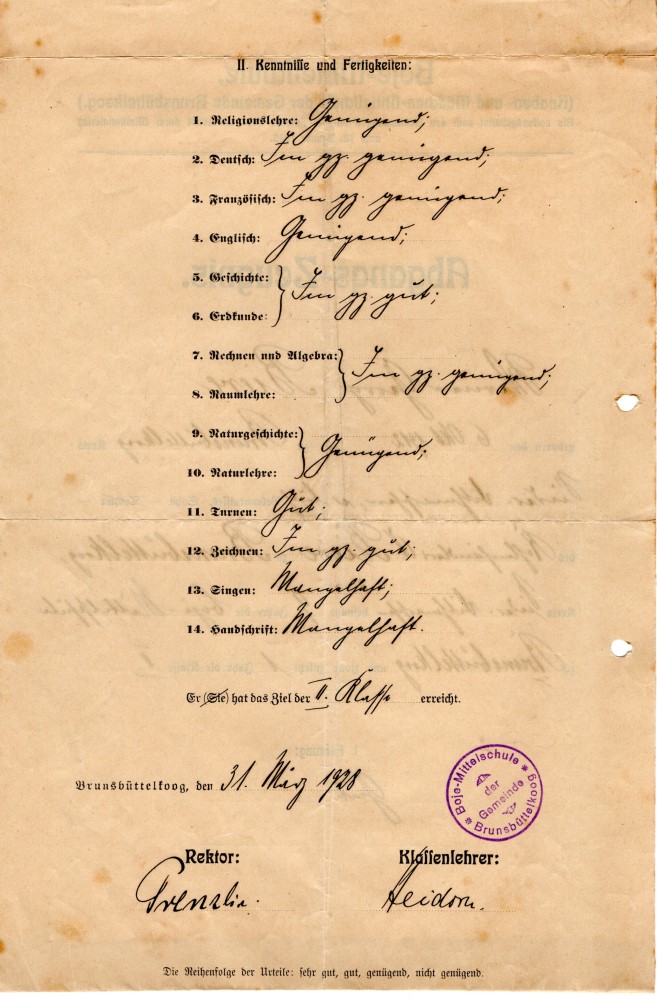 II. Kenntnisse und Fertigkeiten:
1. Religionslehre: Genügend;
2. Deutsch: Im gz. genügend;
3. Französisch: Im gz. genügend;
4. Englisch: Genügend;
5. Geschichte:
Im gz. gut;
6. Erdkunde:
7. Rechnen und Algebra:
Im gz. genügend;
8. Raumlehre:
9. Naturgeschichte:
Genügend;
10. Naturlehre:
11. Turnen: Gut;
12. Zeichnen: Im gz. gut;
13. Singen: Mangelhaft;
14. Handschrift: Mangelhaft.
Er (Sie) hat das Ziel der II. Klasse erreicht.
Brunsbüttelkoog, den 31. März 1928
Boje-Mittelschule
der
Gemeinde
Brunsbüttelkoog
Rektor: Klassenlehrer:
Heidorn.
Die Reihenfolge der Urteile: sehr gut, gut, genügend, nicht genügend.